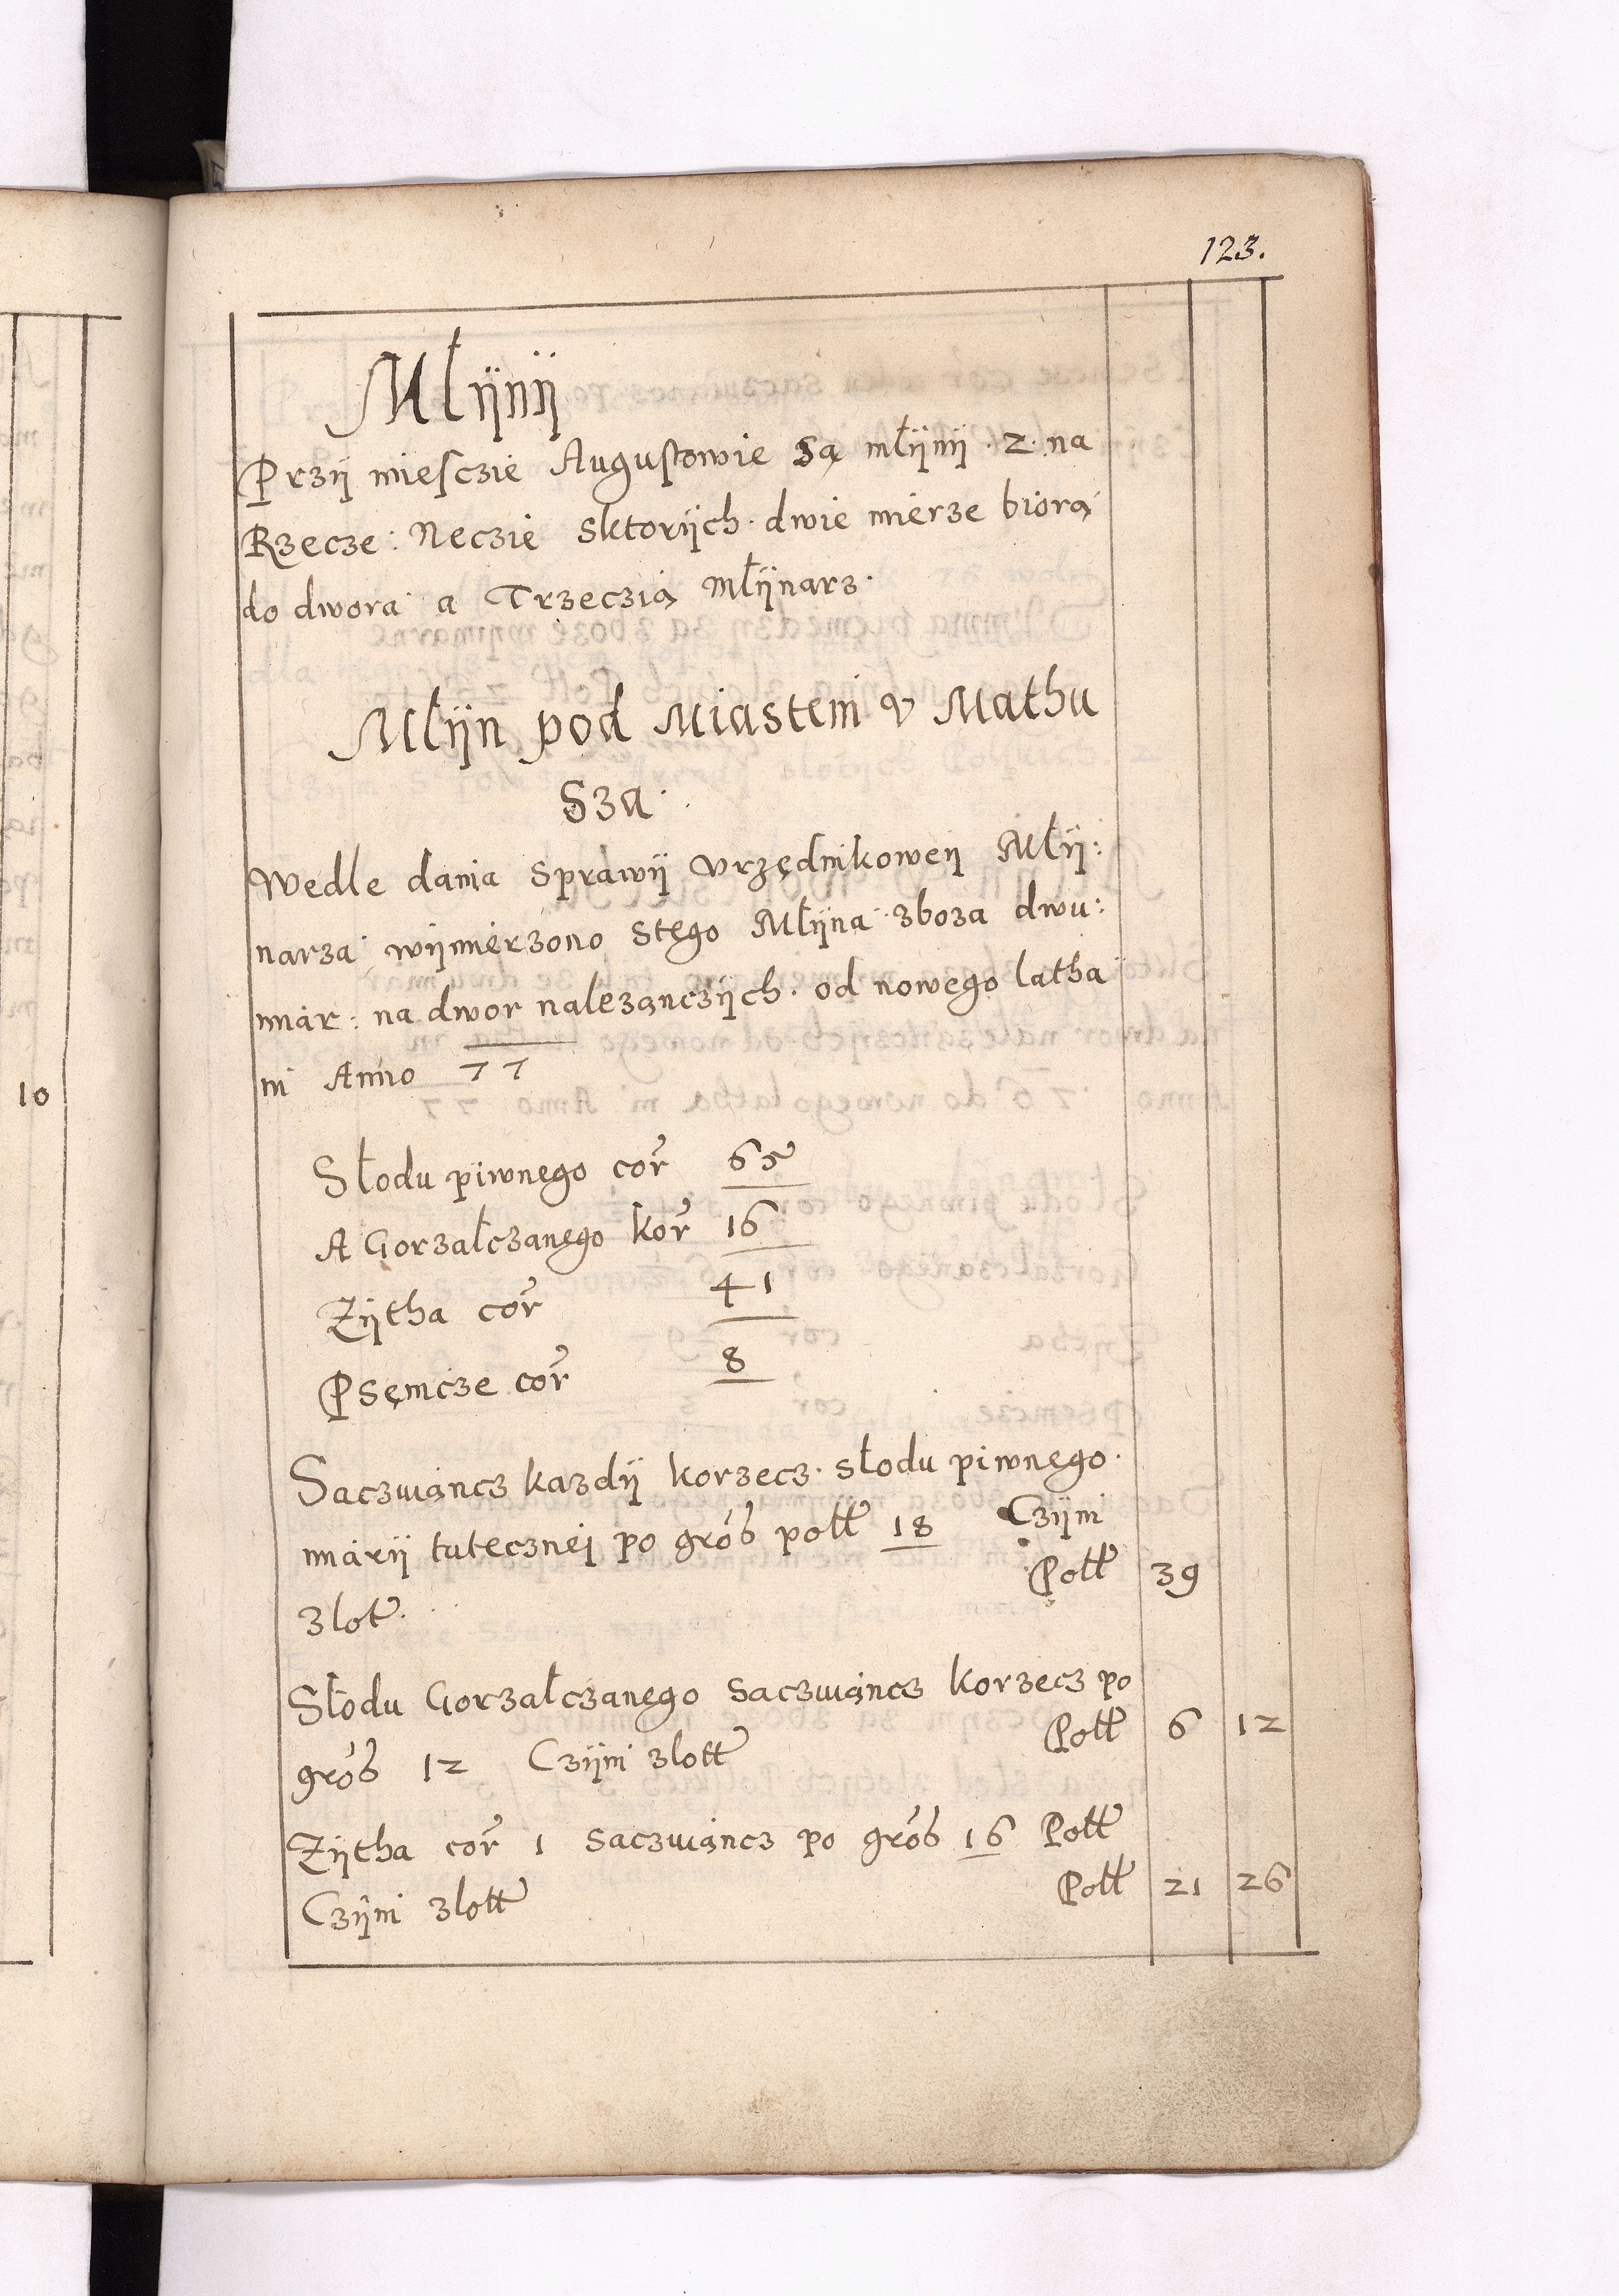 123.
Młÿnÿ
Przÿ mieſczie Auguſtowie są młÿnÿ · 2 · na
Rzecze : Neczie sktorÿch · dwie mierze biorą
do dwora a Trzeczią Młÿnarz ·
Młÿn pod Miastem v Mathu
sza ·
Wedle dania sprawÿ vrzędnikoweÿ Młÿ:
narza wÿmierzono stego Młÿna zboza dwu:
miar : na dwor nalezączÿch · od nowego latha
in Anno 77
Słodu piwnego cor 65
A Gorzałczanego kor 16
Zÿtha cor 41
Psemcze cor 8
Saczuiącz kazdÿ korzecz · słodu piwnego ·
miarÿ tutecznej po gros poll 18 Czÿni
zlot · Poll 39
Słodu Gorzałczanego saczuiącz korzecz po
gros 12 Czÿni zlott Poll 6 12
Zÿtha cor 1 saczuiącz po gros 16 Poll
Czÿni zlott Poll 21 26
10